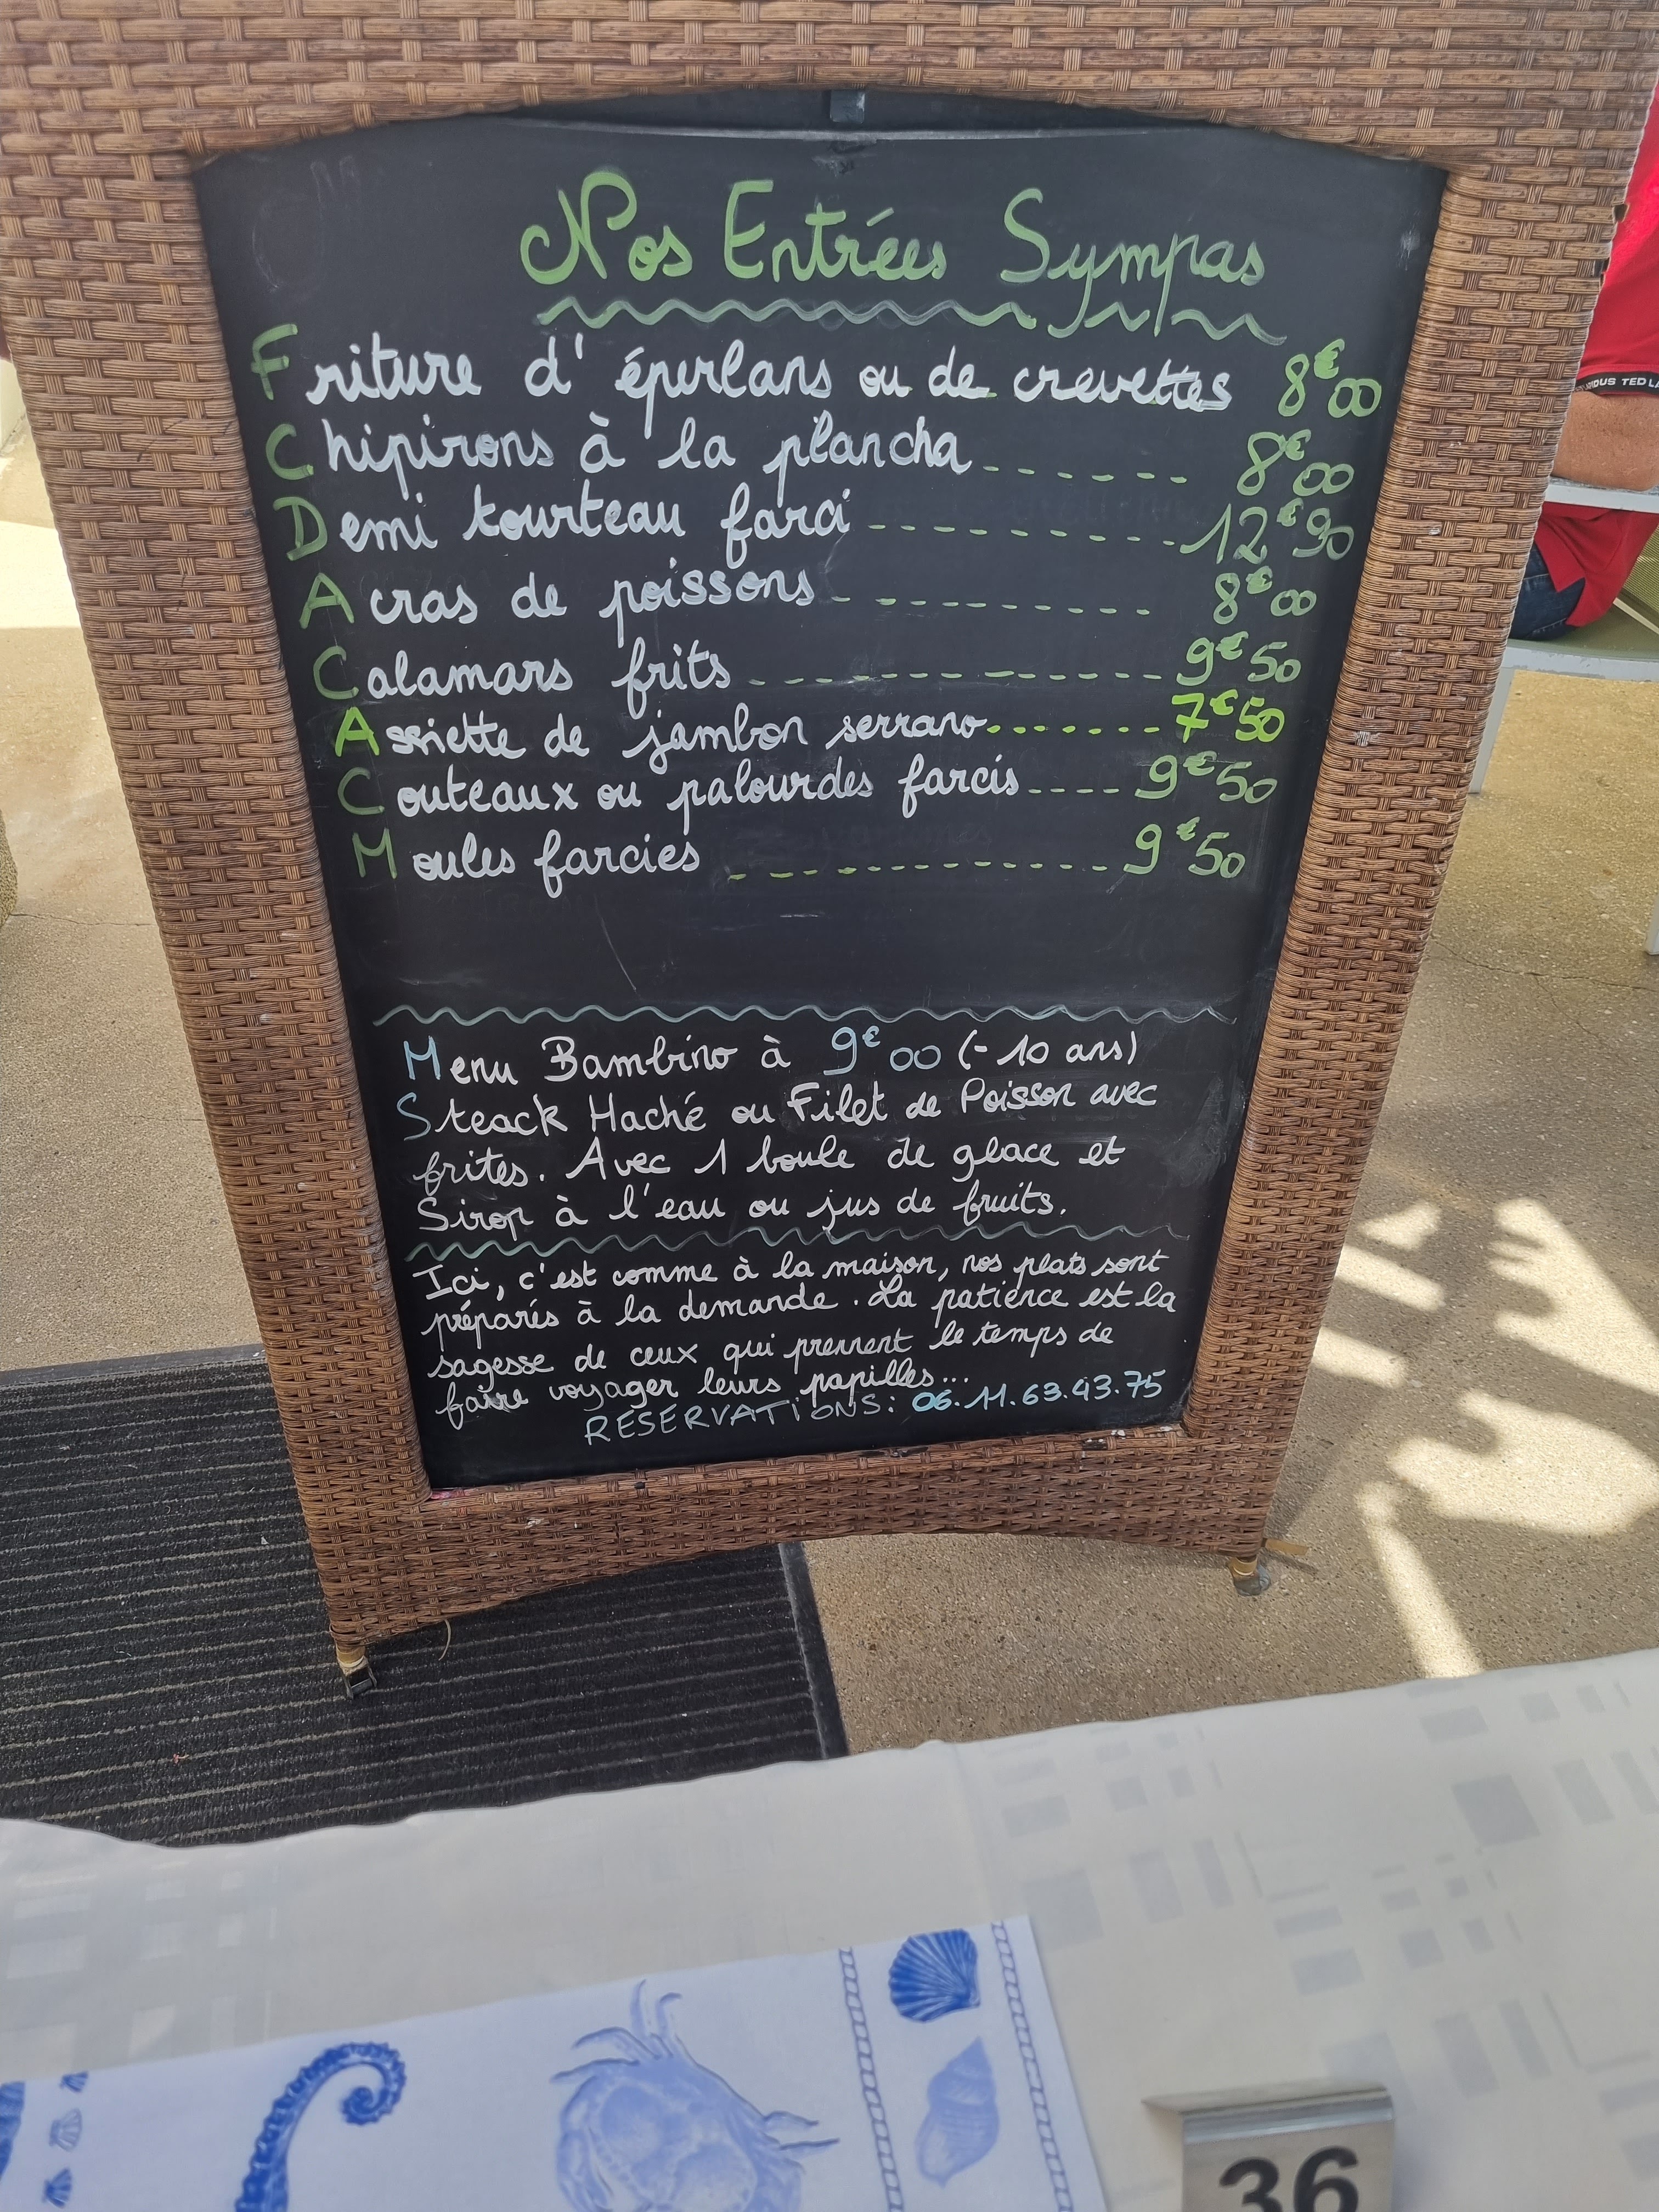 Nos Entrées Sympas
Friture d'éperlans ou de crevettes 8€00
Chipirons à la plancha 8€00
Demi tourteau farci 12€90
Acras de poissons 8€00
Calamars frits 9€50
Assiette de jambon serrano 7€50
Couteaux ou palourdes farcis 9€50
Moules farcies 9€50
Menu Bambino à 9€00 (-10 ans)
Steack Haché ou Filet de Poisson avec
frites. Avec 1 boule de glace et
Sirop à l'eau ou jus de fruits.
Ici, c'est comme à la maison, nos plats sont
préparés à la demande. La patience est la
sagesse de ceux qui prennent le temps de
faire voyager leurs papilles...
RESERVATIONS: 06.11.63.43.75
36